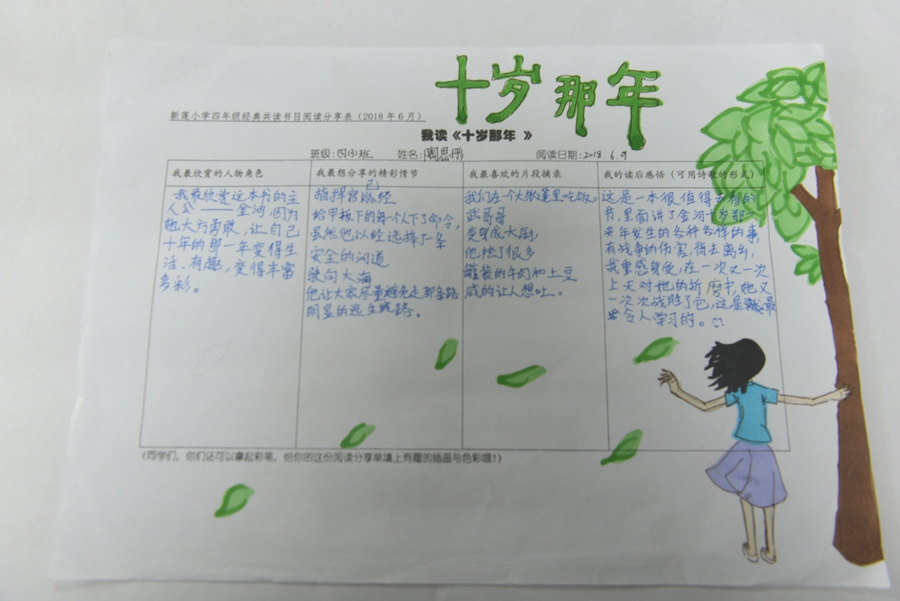 十岁那年
新莲小学四年级经典共读书目阅读分享表（2018年6月）
我读《十岁那年 》
班级:四(3)班 姓名: 阅读日期:2018.6.9
我最欣赏的人物角色
我最欣赏这本书的主
人公——金河,因为
她大方勇敢,让自己
十年的那一年变得生
活、有趣,变得丰富
多彩。
我最想分享的精彩情节
指挥官已经
给甲板下的每个人下了命令,
虽然他以经选择了一条
安全的河道
驶向大海
他让大家尽量避免走那条路
明显的逃生线路。
我最喜欢的片段摘录
我们在一个大帐篷里吃饭。
武哥哥
变身成大厨
他烧了很多
罐装的牛肉和土豆
咸的让人想吐。
我的读后感悟（可用诗歌的形式）
这是一本很值得去看的
书,里面讲了金河十岁那一
年发生的各种各样的事,
有战争的伤害,背去离乡,
我重感身受,在一次又一次
上天对她的折磨中,她又
一次次战胜了它,这是最
令人学习的。
(同学们，你们还可以拿起彩笔，给你的这份阅读分享单填上有趣的插画与色彩哦!)